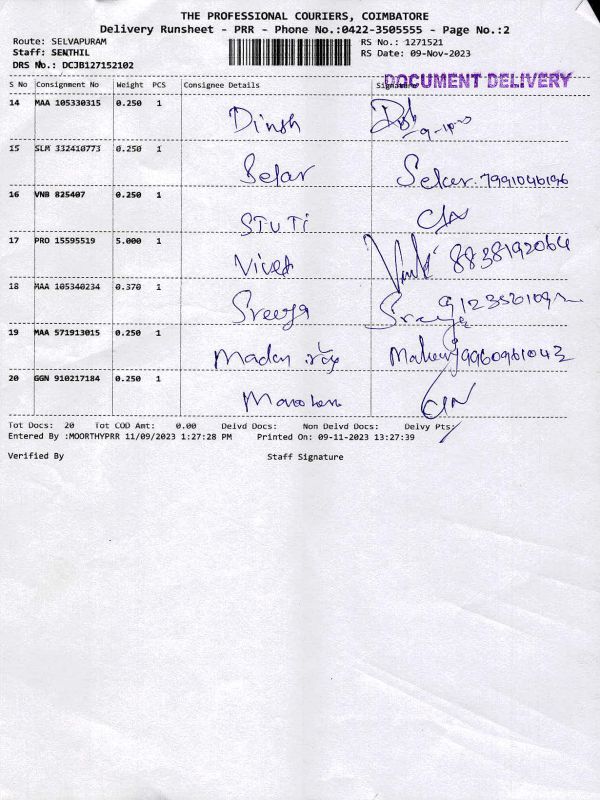 THE PROFESSIONAL COURIERS, COIMBATORE
Delivery Runsheet - PRR - Phone No.:0422-3505555 - Page No.:2
Route: SELVAPURAM RS No.: 1271521
Staff: SENTHIL RS Date: 09-Nov-2023
DRS No.: DCJB127152102
DOCUMENT DELIVERY
S No Consignment No Weight PCS Consignee Details Signature
14 MAA 105330315 0.250 1
Dinsh
15 SLM 332410773 0.250 1
Selar Seker. 7991046196
16 VNB 825407 0.250 1
STUTI
17 PRO 15595519 5.000 1
Vivek 8838192064
18 MAA 105340234 0.370 1
Sreeja
19 MAA 571913015 0.250 1
Madan 9960961043
20 GGN 910217184 0.250 1
Tot Docs: 20 Tot COD Amt: 0.00 Delvd Docs: Non Delvd Docs: Delvy Pts:
Entered By :MOORTHYPRR 11/09/2023 1:27:28 PM Printed On: 09-11-2023 13:27:39
Verified By Staff Signature